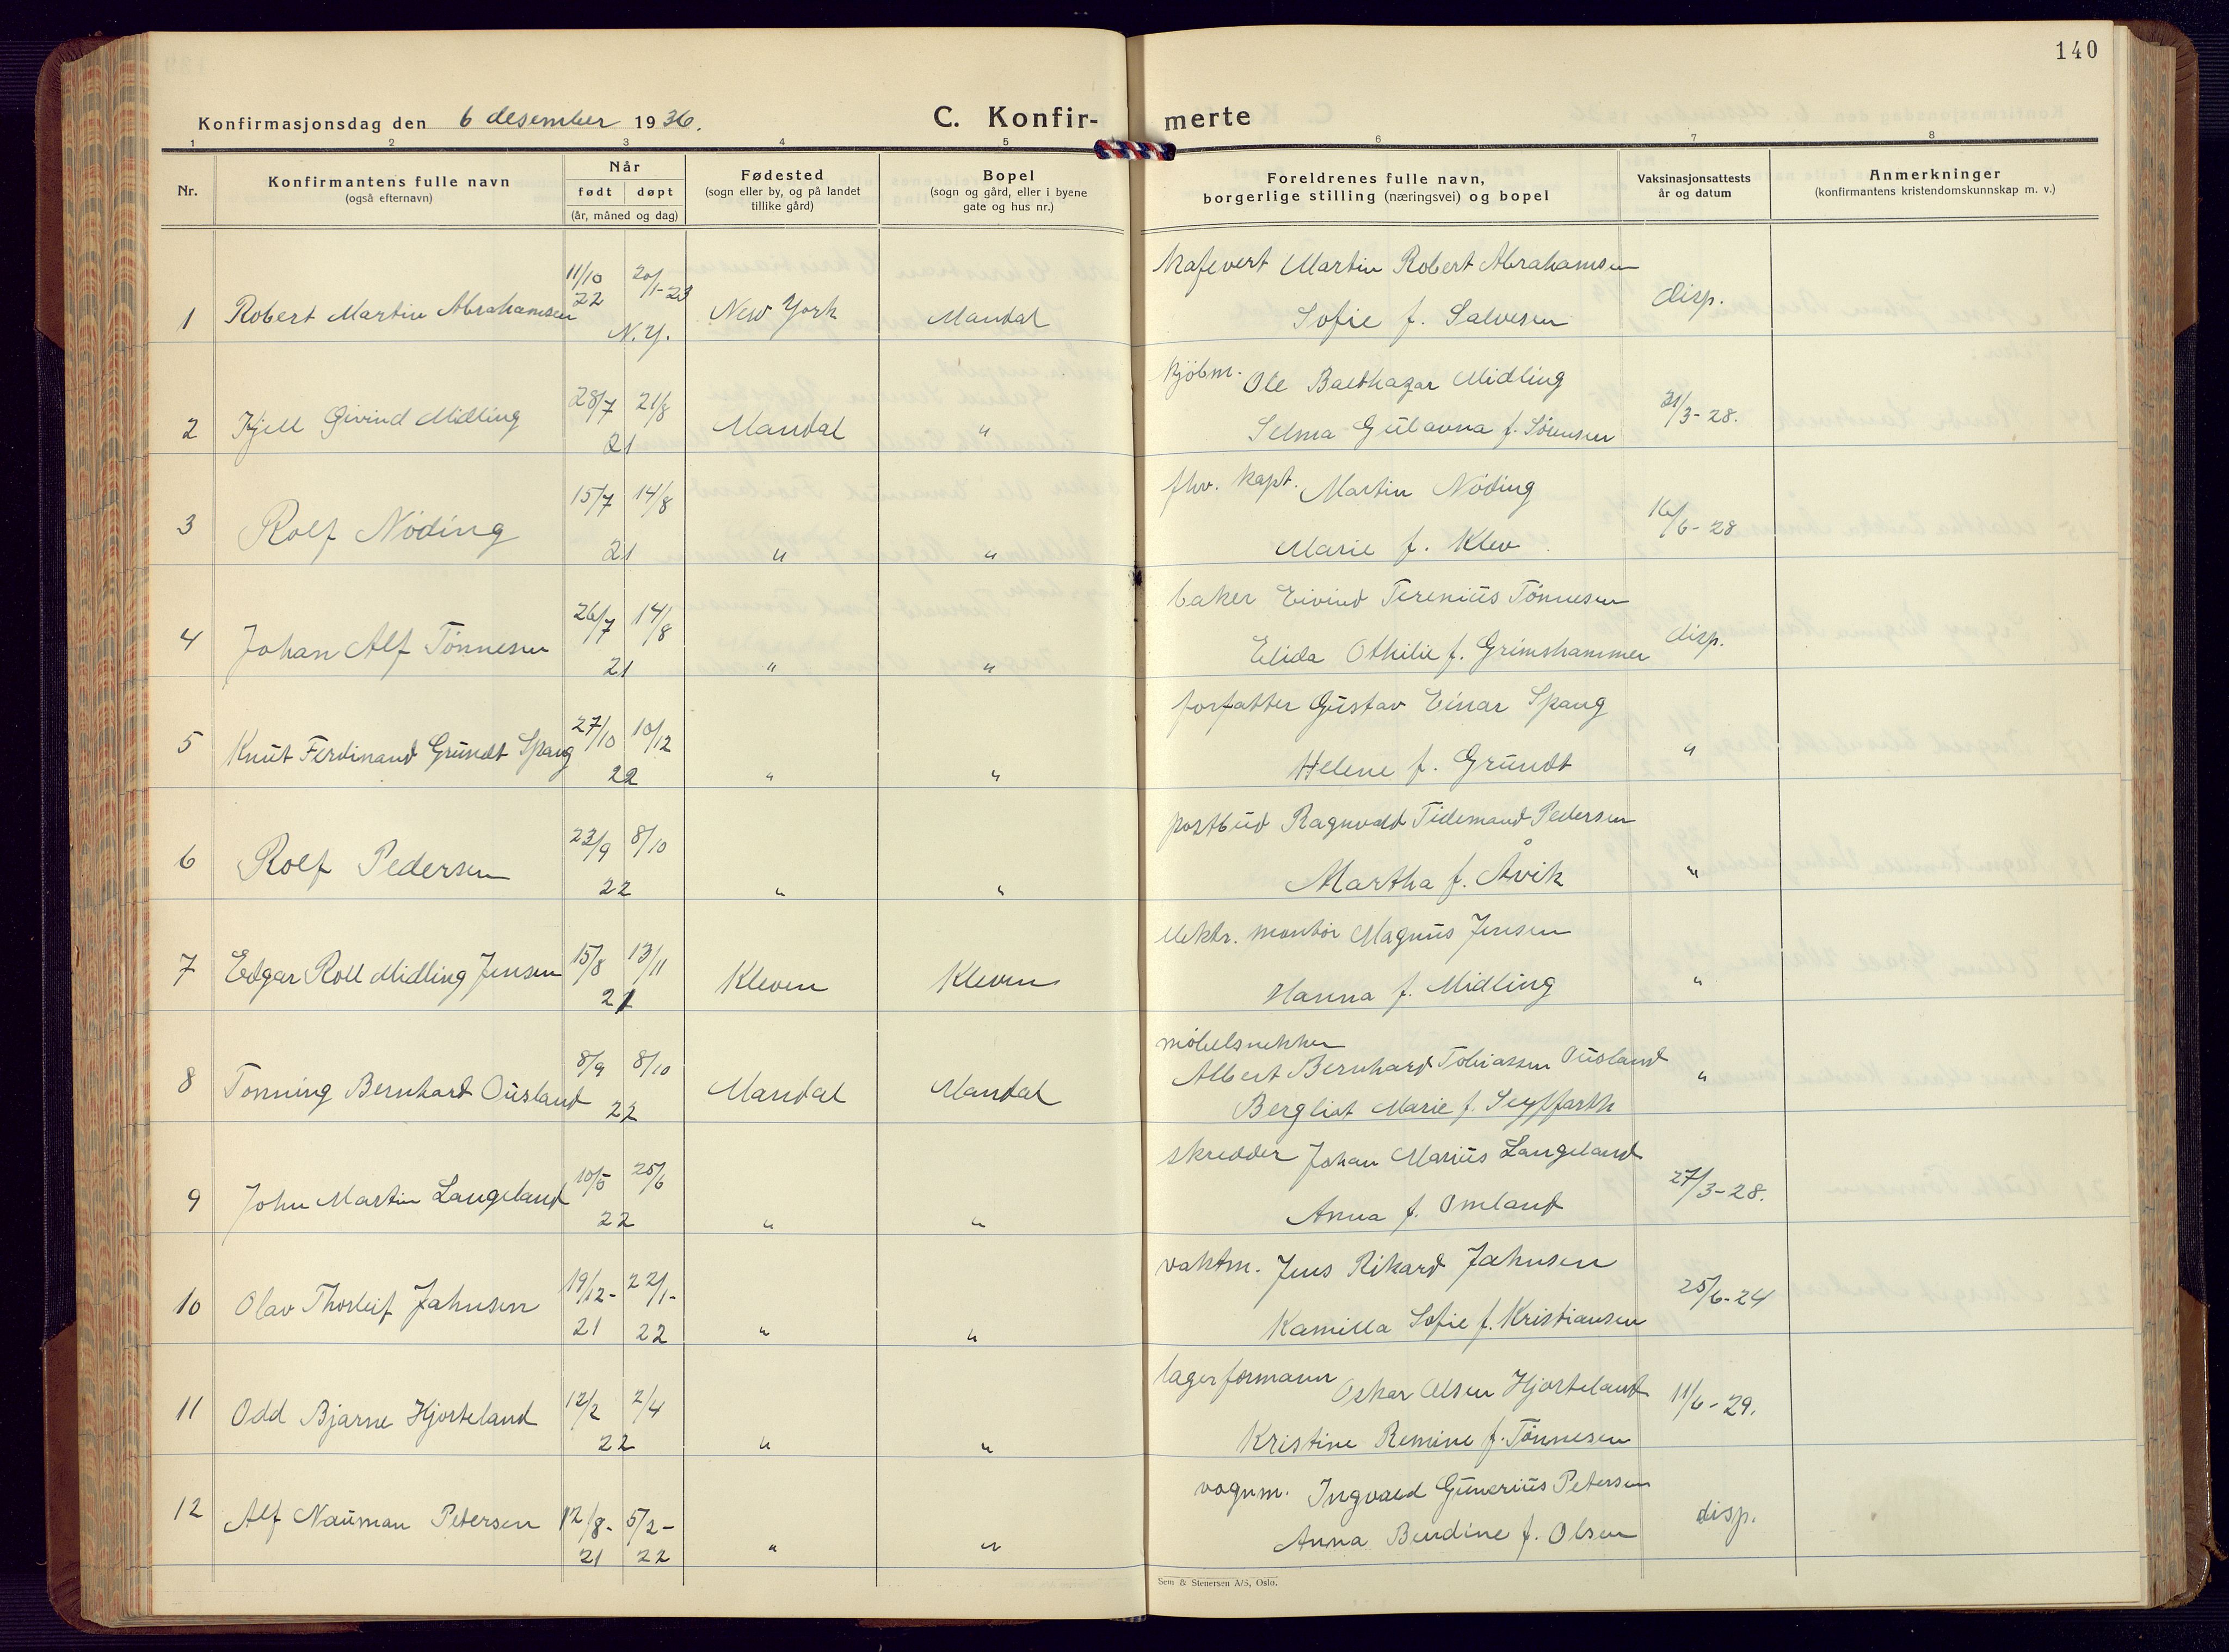 140
Konfirmasjonsdag den 6 desember 1936.
C. Konfir- merte
1 2 3 4 5 6 7 8
Nr.
Konfirmantens fulle navn
(også efternavn)
Når
født døpt
(år, måned og dag)
Fødested
(sogn eller by, og på landet
tillike gård)
Bopel
(sogn og gård, eller i byene
gate og hus nr.)
Foreldrenes fulle navn,
borgerlige stilling (næringsvei) og bopel
Vaksinasjonsattests
år og datum
Anmerkninger
(konfirmantens kristendomskunnskap m. v.)
11/10 20/1-23 Kafevert Martin Robert Abrahamsen
22
1 Robert Martin Abrahamsen N.Y. New York Mandal Sofie f. Salvesen disp.
28/7 21/8 kjöbm. Ole Balthazar Midling
2 Kjell Öivind Midling 21 Mandal " Selma Gülavna f. Sörensen 31/3-28.
15/7 14/8 fhv. kapt. Martin Nöding
3 Rolf Nöding 21 " " Marie f. Klev 16/6-28
26/7 14/8 baker Eivind Tereniüs Tönnesen
4 Johan Alf Tönnesen 21 " " Elida Othilie f. Grimshammer disp.
27/10 10/12 forfatter Güstav Einar Spang
5 Knüt Ferdinand Gründt Spang 22 " " Helene f. Gründt "
23/9 8/10 postbüd Ragnvald Tidemand Pedersen
6 Rolf Pedersen 22 " " Martha f. Åvik "
15/8 13/11 elektr. montör Magnüs Jensen
7 Edgar Roll Midling Jensen 21 Kleven Kleven Hanna f. Midling "
8/9 8/10 möbelsnekker
Albert Bernhard Tobiassen Oüsland
8 Tönning Bernhard Oüsland 22 Mandal Mandal Bergliot Marie f. Seyffarth "
10/5 25/6 skredder Johan Mariüs Langeland
9 John Martin Langeland 22 " " Anna f. Omland 27/3-28.
19/12- 22/1- vaktm. Jens Rikard Jahnsen
10 Olav Thorleif Jahnsen 21 22 " " Kamilla Sofie f. Kristiansen 25/6-24
12/2 2/4 lagerformann Oskar Olsen Hjorteland
11 Odd Bjarne Hjorteland 22 " " Kristine Remine f. Tönnesen 11/6-29.
12/8- 5/2- vognm. Ingvald Güneriüs Petersen
12 Alf Naüman Petersen 21 22 " " Anna Bendine f. Olsen disp.
Sem & Stenersen A/S, Oslo.